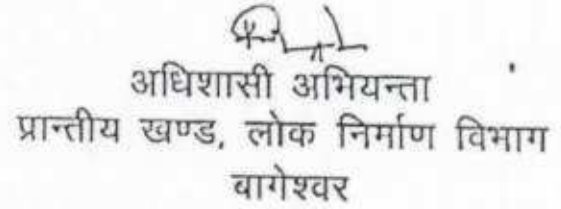 अधिशासी अभियन्ता
प्रान्तीय खण्ड, लोक निर्माण विभाग
बागेश्वर